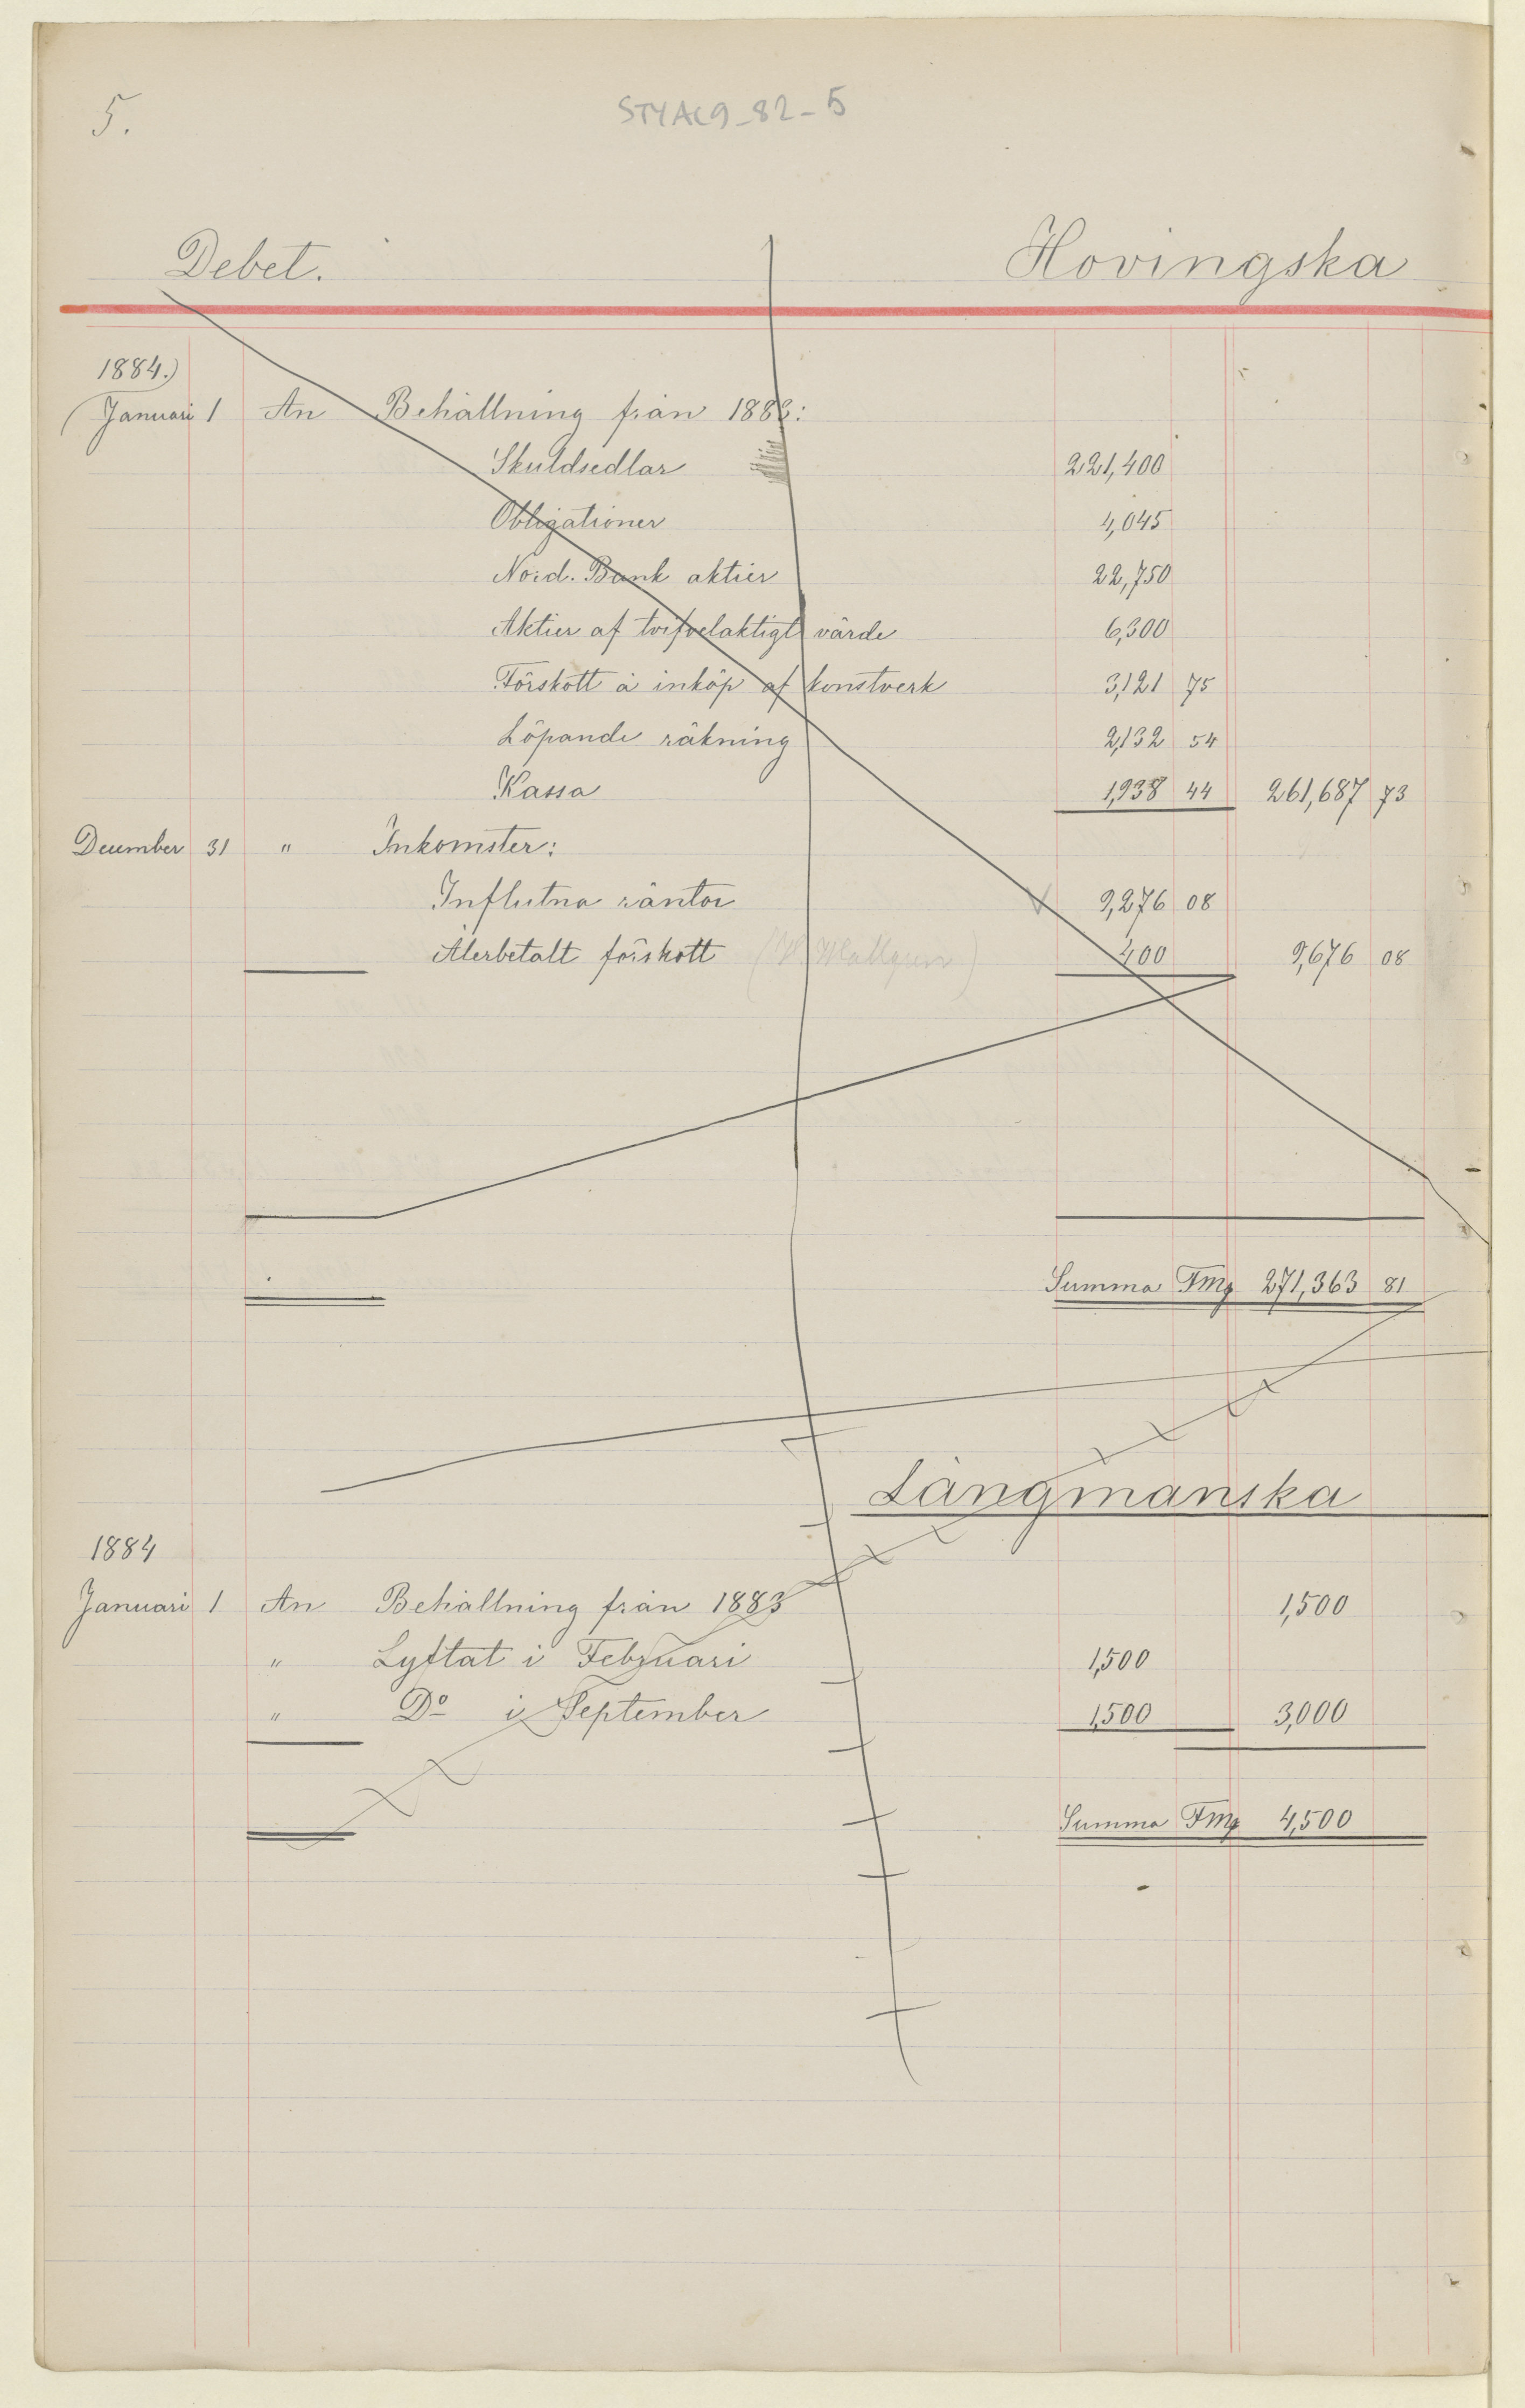 5.
STYAC9_82-5
Debet. Hovingska
1884.)
Januari 1 An Behållning från 1883:
Skuldsedlar 221,400
Obligationer 4,045
Nord. Bank aktier 22,750
Aktier af tvifvelaktigt värde 6,300
Förskott å inköp af konstverk 3,121 75
Löpande räkning 2,132 54
Kassa 1,938 44 261,687 73
December 31 " Inkomster:
Influtna räntor 9,276 08
Återbetalt förskott 400 9,676 08
Summa Fmg 271,363 81
Längmanska
1884
Januari 1 An Behållning från 1883 1,500
" Lyftat i Februari 1,500
" Do i September 1,500 3,000
Summa Fmg 4,500